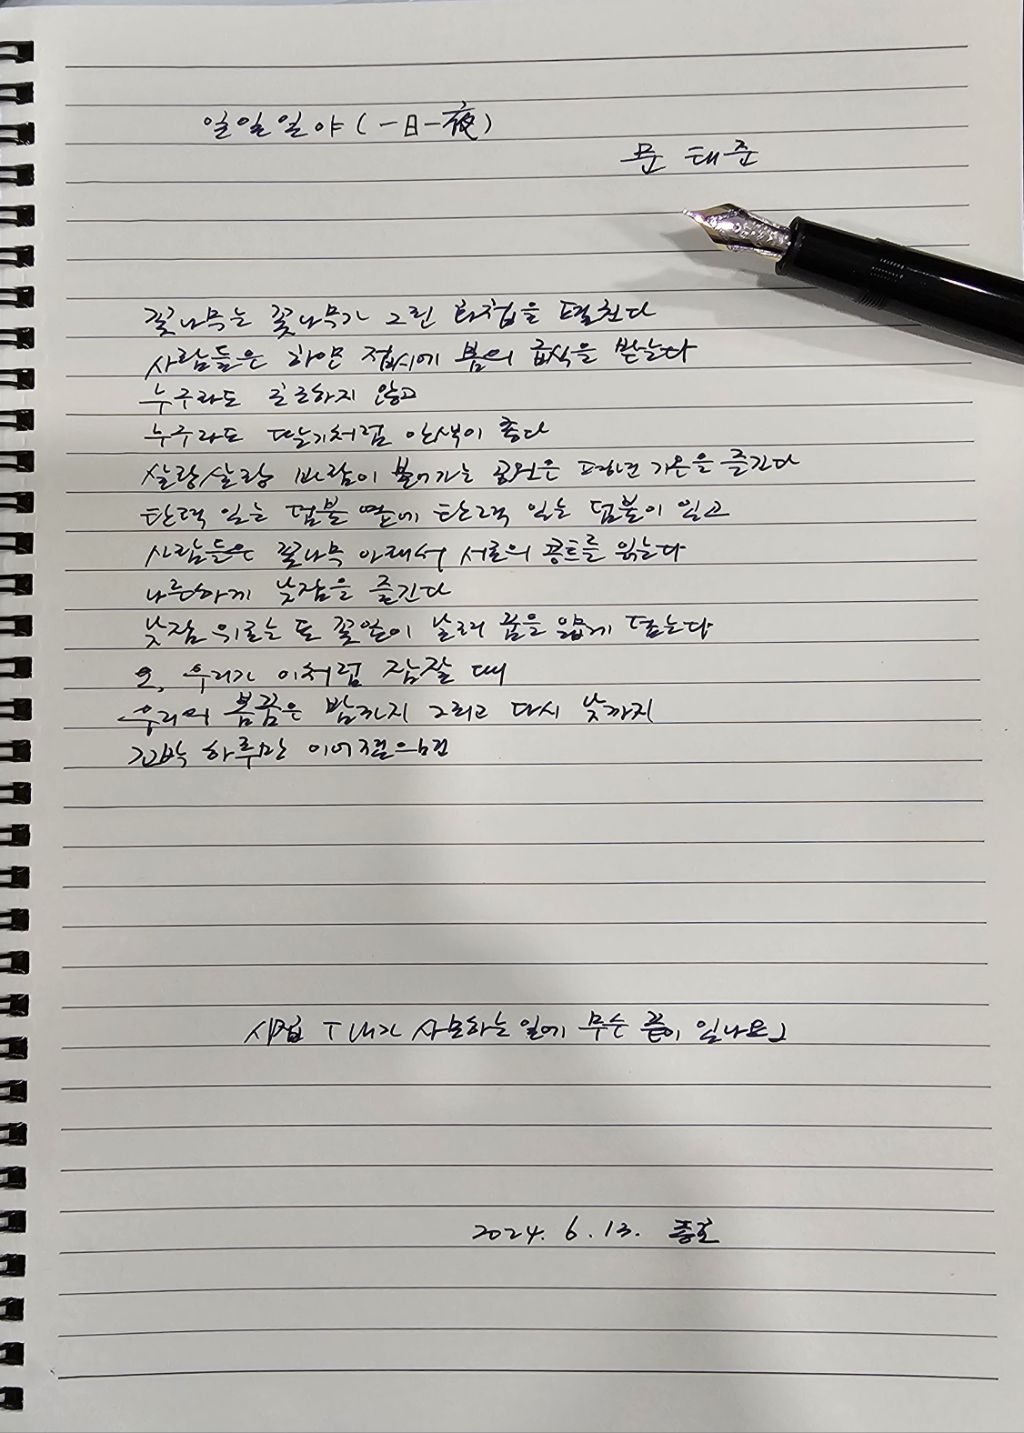 일일일야(一日一夜)
문 태준
꽃나무는 꽃나무가 그린 화첩을 펼친다
사람들은 하얀 접시에 봄의 급식을 받는다
누구라도 골몰하지 않고
누구라도 딸기처럼 안색이 좋다
살랑살랑 바람이 불어가는 공원은 평년 기온을 즐긴다
탄력 있는 덤불 옆에 탄력 있는 덤불이 있고
사람들은 꽃나무 아래서 서로의 콩트를 읽는다
나른하게 낮잠을 즐긴다
낮잠 위로는 또 꽃잎이 날려 꿈을 얇게 덮는다
오, 우리가 이처럼 잠잘 때
우리의 봄꿈은 밤까지 그리고 다시 낮까지
꼬박 하루만 이어졌으면
시집 「내가 사모하는 일에 무슨 끝이 있나요」
2024. 6. 13. 종로